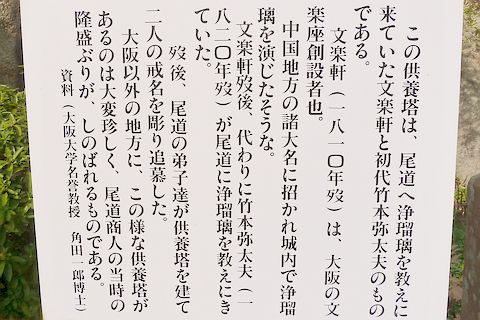 この供養塔は、尾道へ浄瑠璃を教えに
来ていた文楽軒と初代竹本弥太夫のもの
である。
文楽軒（一八一〇年歿）は、大阪の文
楽座創設者也。
中国地方の諸大名に招かれ城内で浄瑠
璃を演じたそうな。
文楽軒歿後、代わりに竹本弥太夫（一
八二〇年歿）が尾道に浄瑠璃を教えにき
ていた。
歿後、尾道の弟子達が供養塔を建て
二人の戒名を彫り追慕した。
大阪以外の地方に、この様な供養塔が
あるのは大変珍しく、尾道商人の当時の
隆盛ぶりが、しのばれるものである。
資料（大阪大学名誉教授 角田一郎博士）